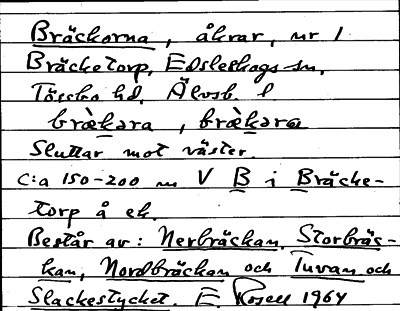 Bräckorna, åkrar, nr 1
Bräcketorp, Edsleskogs sn,
Tössbo hd, Älvsb. l
brækara, brækara
Sluttar mot väster.
c:a 150-200 m V B i Bräcke-
torp å ek.
Består av: Nerbräckan, Storbräc-
kan, Nordbräckan och Tuvan och
Slackestycket. E. Rosell 1964